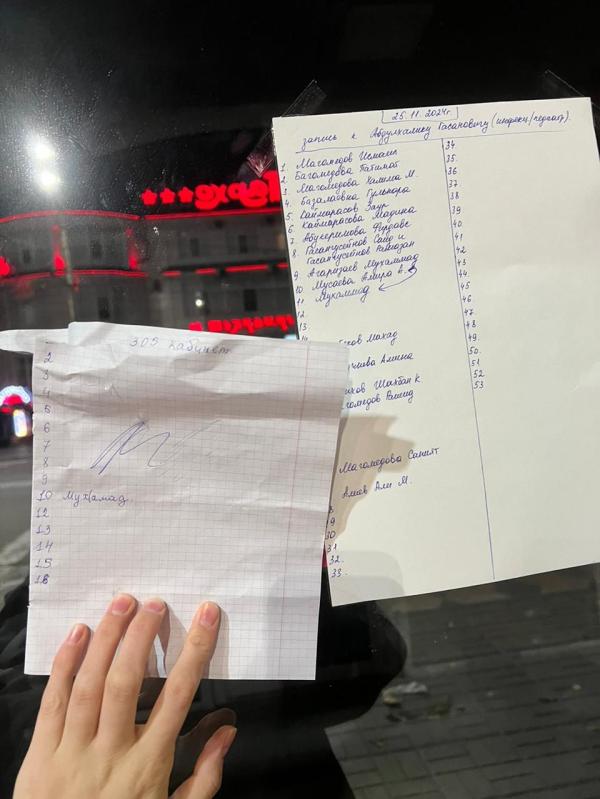 25.11.2024г.
запись к Абдулхалику Гасановичу (инфекц/педиатр).
1. Магомедов Исмаил
2 Багомедова Патимат
3. Магомедова Халима М.
4. Базалаевна Гульнара
5. Каймарасов Заур
6. Каймарасова Мадина
7. Абукеримова Фирдавс
8. Гасангусейнов Саид и
Гасангусейнов Рамазан
9. Мухаммад
10. Мусаева Амира А.
11 Мухаммад
12.
13.
Махад
Амина
Шахбан К.
Рашид
Магомедова Саният
Алиев Али М.
30
31
32.
33.
34
35.
36
37
38
39
40.
41
42
43
44.
45
46.
47.
48
49.
50.
51
52
53
305 кабинет
2
3
4
5
6
7
8
9
10 Мухамад.
12
13
14
15
16